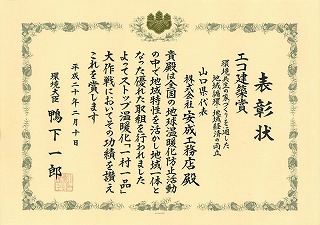 表彰状
エコ建築賞
環境共生の家づくりを通した
地域循環・地域経済の両立
山口県代表
株式会社安成工務店殿
貴殿は全国の地球温暖化防止活動
の中で地域特性を活かし地域一体と
なった優れた取組を行われました
よってストップ温暖化「一村一品」
大作戦においてその功績を讃え
これを賞します
平成二十年二月十日
環境大臣 鴨下一郎